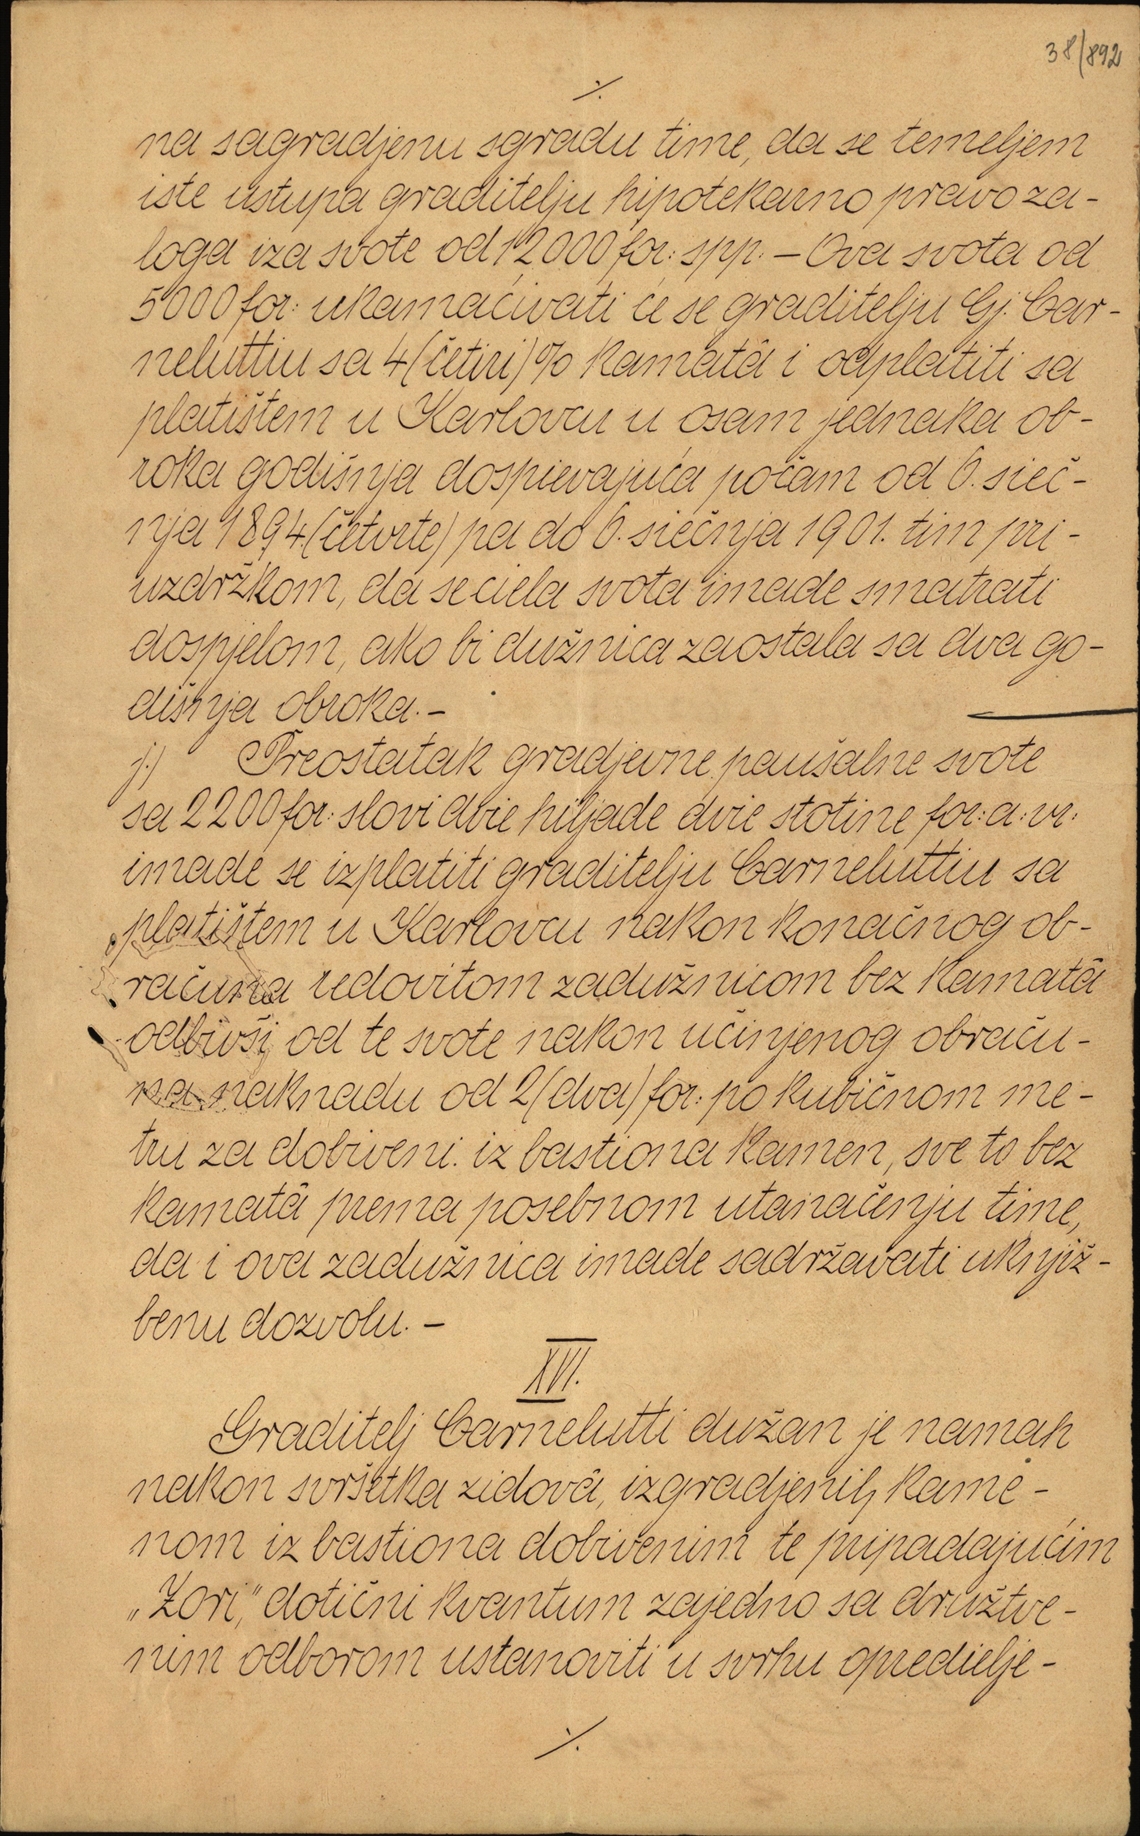 38/892
·/.
na sagradjenu sgradu time, da se temeljem
iste ustupa graditelju hipotekarno pravo za-
loga iza svote od 12000 for: spp. – Ova svota od
5000 for: ukamaćivati će se graditelju Gj. Car-
neluttiu sa 4 (četiri)% kamatâ i odplatiti sa
platištem u Karlovcu u osam jednaka ob-
roka godišnja dospievajuća počam od 6. sieč-
nja 1894. (četvrte) pa do 6. siečnja 1901. tim pri-
uzdržkom, da se ciela svota imade smatrati
dospjelom, ako bi dužnica zaostala sa dva go-
dišnja obroka. –
j.) Preostatak gradjevne paušalne svote
sa 2200 for: slovi dvie hiljade dvie stotine for: a: vr:
imade se izplatiti graditelju Carneluttiu sa
platištem u Karlovcu nakon konačnog ob-
računa redovitom zadužnicom bez kamatâ
odbivši od te svote nakon učinjenog obraču-
na naknadu od 2 (dva) for: po kubičnom me-
tru za dobiveni iz bastiona kamen, sve to bez
kamatâ prema posebnom utanačenju time,
da i ova zadužnica imade sadržavati uknjiž-
benu dozvolu. –
XVI.
Graditelj Carnelutti dužan je namah
nakon svršetka zidovâ, izgradjenih kame-
nom iz bastiona dobivenim te pripadajućim
„Zori," dotični kvantum zajedno sa družtve-
nim odborom ustanoviti u svrhu opredielje-
·/.